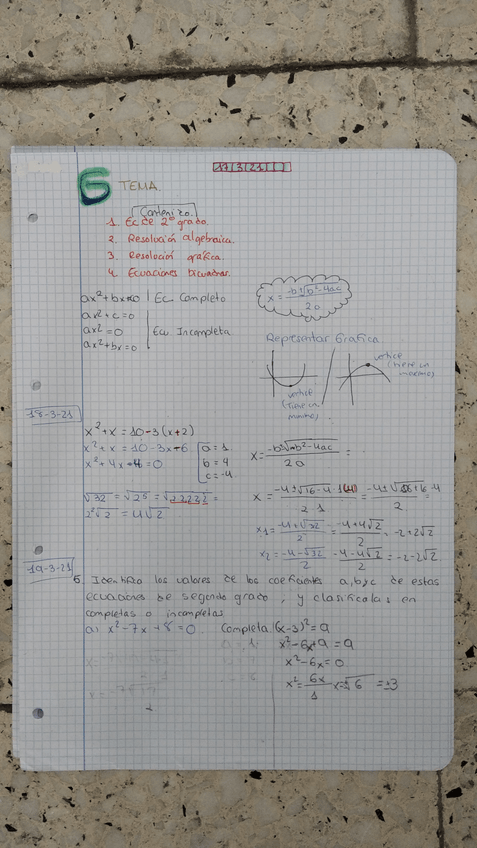 17/3/21
6 TEMA.
Contenizo.
1. Ec de 2º grado.
2. Resolución algebraica.
3. Resolución gráfica.
4. Ecuaciones bicuadrar.
ax²+bx=0 | Ec Completo
ax²+c=0
ax²=0 | Ecu Incompleta
ax²+bx=0
x = -b±√b²-4ac / 2a
Representar Grafica
vertice (tiene un minimo)
vertice (tiene un maximo)
18-3-21
x²+x = 10-3(x+2)
x²+x = 10-3x-6
x²+4x-4=0
a = 1
b = 4
c = -4
√32 = √2⁵ = √2·2·2·2·2 =
2²√2 = 4√2
x = -b±√b²-4ac / 2a =
x = -4±√16-4·1(-4) / 2·1 = -4±√16+16 / 2
x₁ = -4+√32 / 2 = -4+4√2 / 2 = -2+2√2
x₂ = -4-√32 / 2 -4-4√2 / 2 = -2-2√2
19-3-21
5. Identifico los valores de los coeficientes a, b y c de estas
ecuaciones de segundo grado, y clasificalas en
completas o incompletas
a) x²-7x+8=0. Completa
(x-3)²=9
x²-6x+9=9
x²-6x=0
x²= 6x / 1 x=±√6 =±3